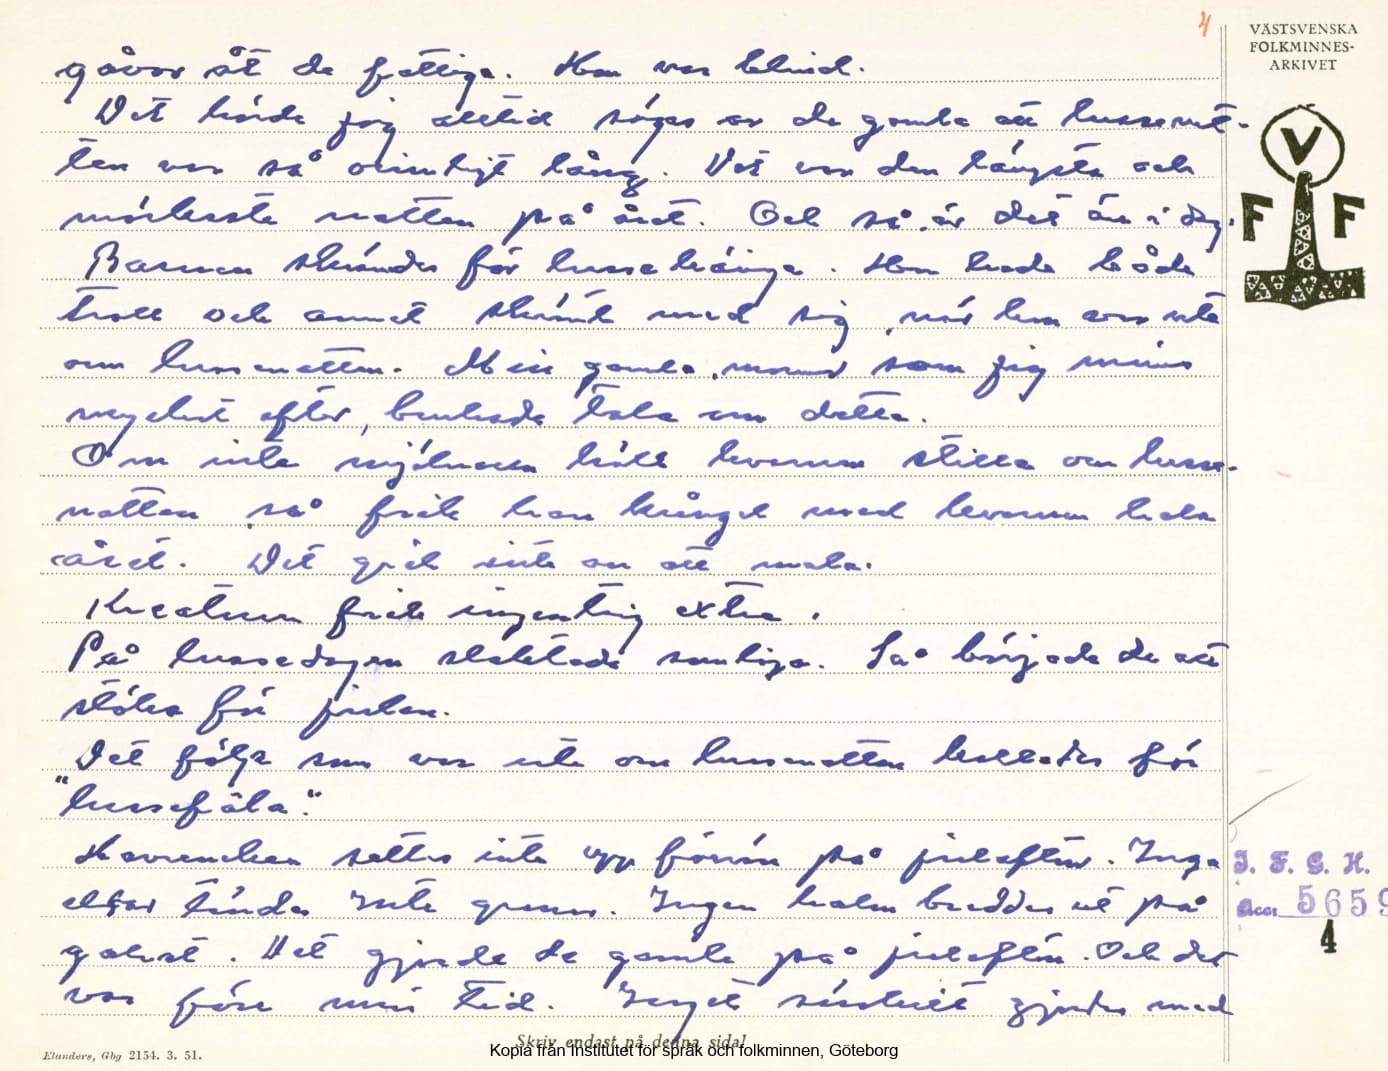 4
VÄSTSVENSKA
FOLKMINNES-
ARKIVET
V
F F
gåvor åt de fattiga. Hon var blind.
Det hörde jag alltid sägas av de gamla att lussenat-
ten var så orimligt lång. Det var den längsta och
mörkaste natten på året. Och så är det än i dag.
Barnen skrämdes för lusse       . Hon hade både
troll och annat skrämt med sig, när hon var ute
om lussenatten. Min gamla mormor som jag minns
mycket efter, brukade tala om detta.
Om inte mjölnaren höll kvarnen stilla om lusse-
natten så fick han krångel med kvarnen hela
året. Det gick inte an att mala.
Kreaturen fick ingenting extra.
På lussedagen slaktade somliga. Så började de att
stöka för julen.
Det följe som var ute om lussenatten kallades för
"lussefäla".
Havreneken sattes inte upp förrän på julafton. Inga
eldar tändes. Inte granar. Ingen halm breddes ut på
golvet. Det gjorde de gamla på julafton. Och det
var före min tid. Inget särskilt gjordes med
I. F. G. H.
Acc. 5659
4
Skriv endast på denna sida!
Elanders, Gbg 2154. 3. 51.
Kopia från Institutet för språk och folkminnen, Göteborg